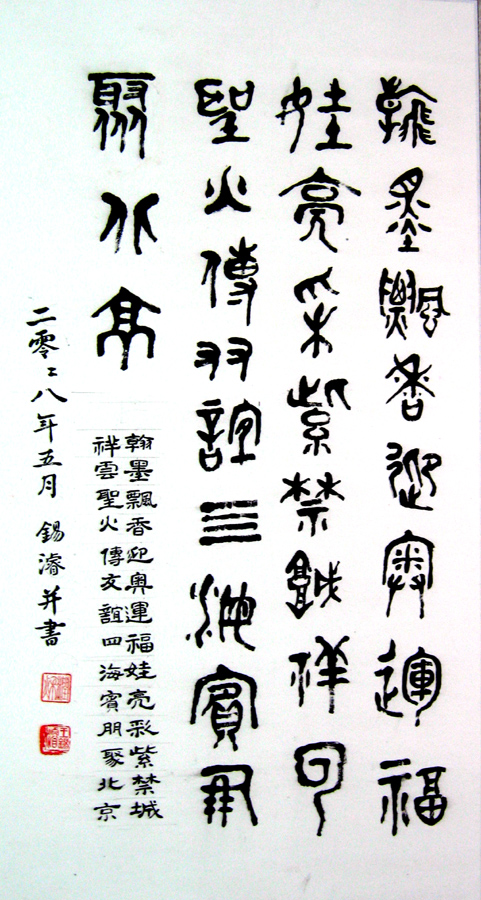 翰墨飄香迎奧運福
娃亮采紫禁城祥云
聖火傳友誼三海賓朋
聚北京
翰墨飄香迎奧運福娃亮彩紫禁城
祥雲聖火傳友誼四海賓朋聚北京
二零〻八年五月 錫濬并書